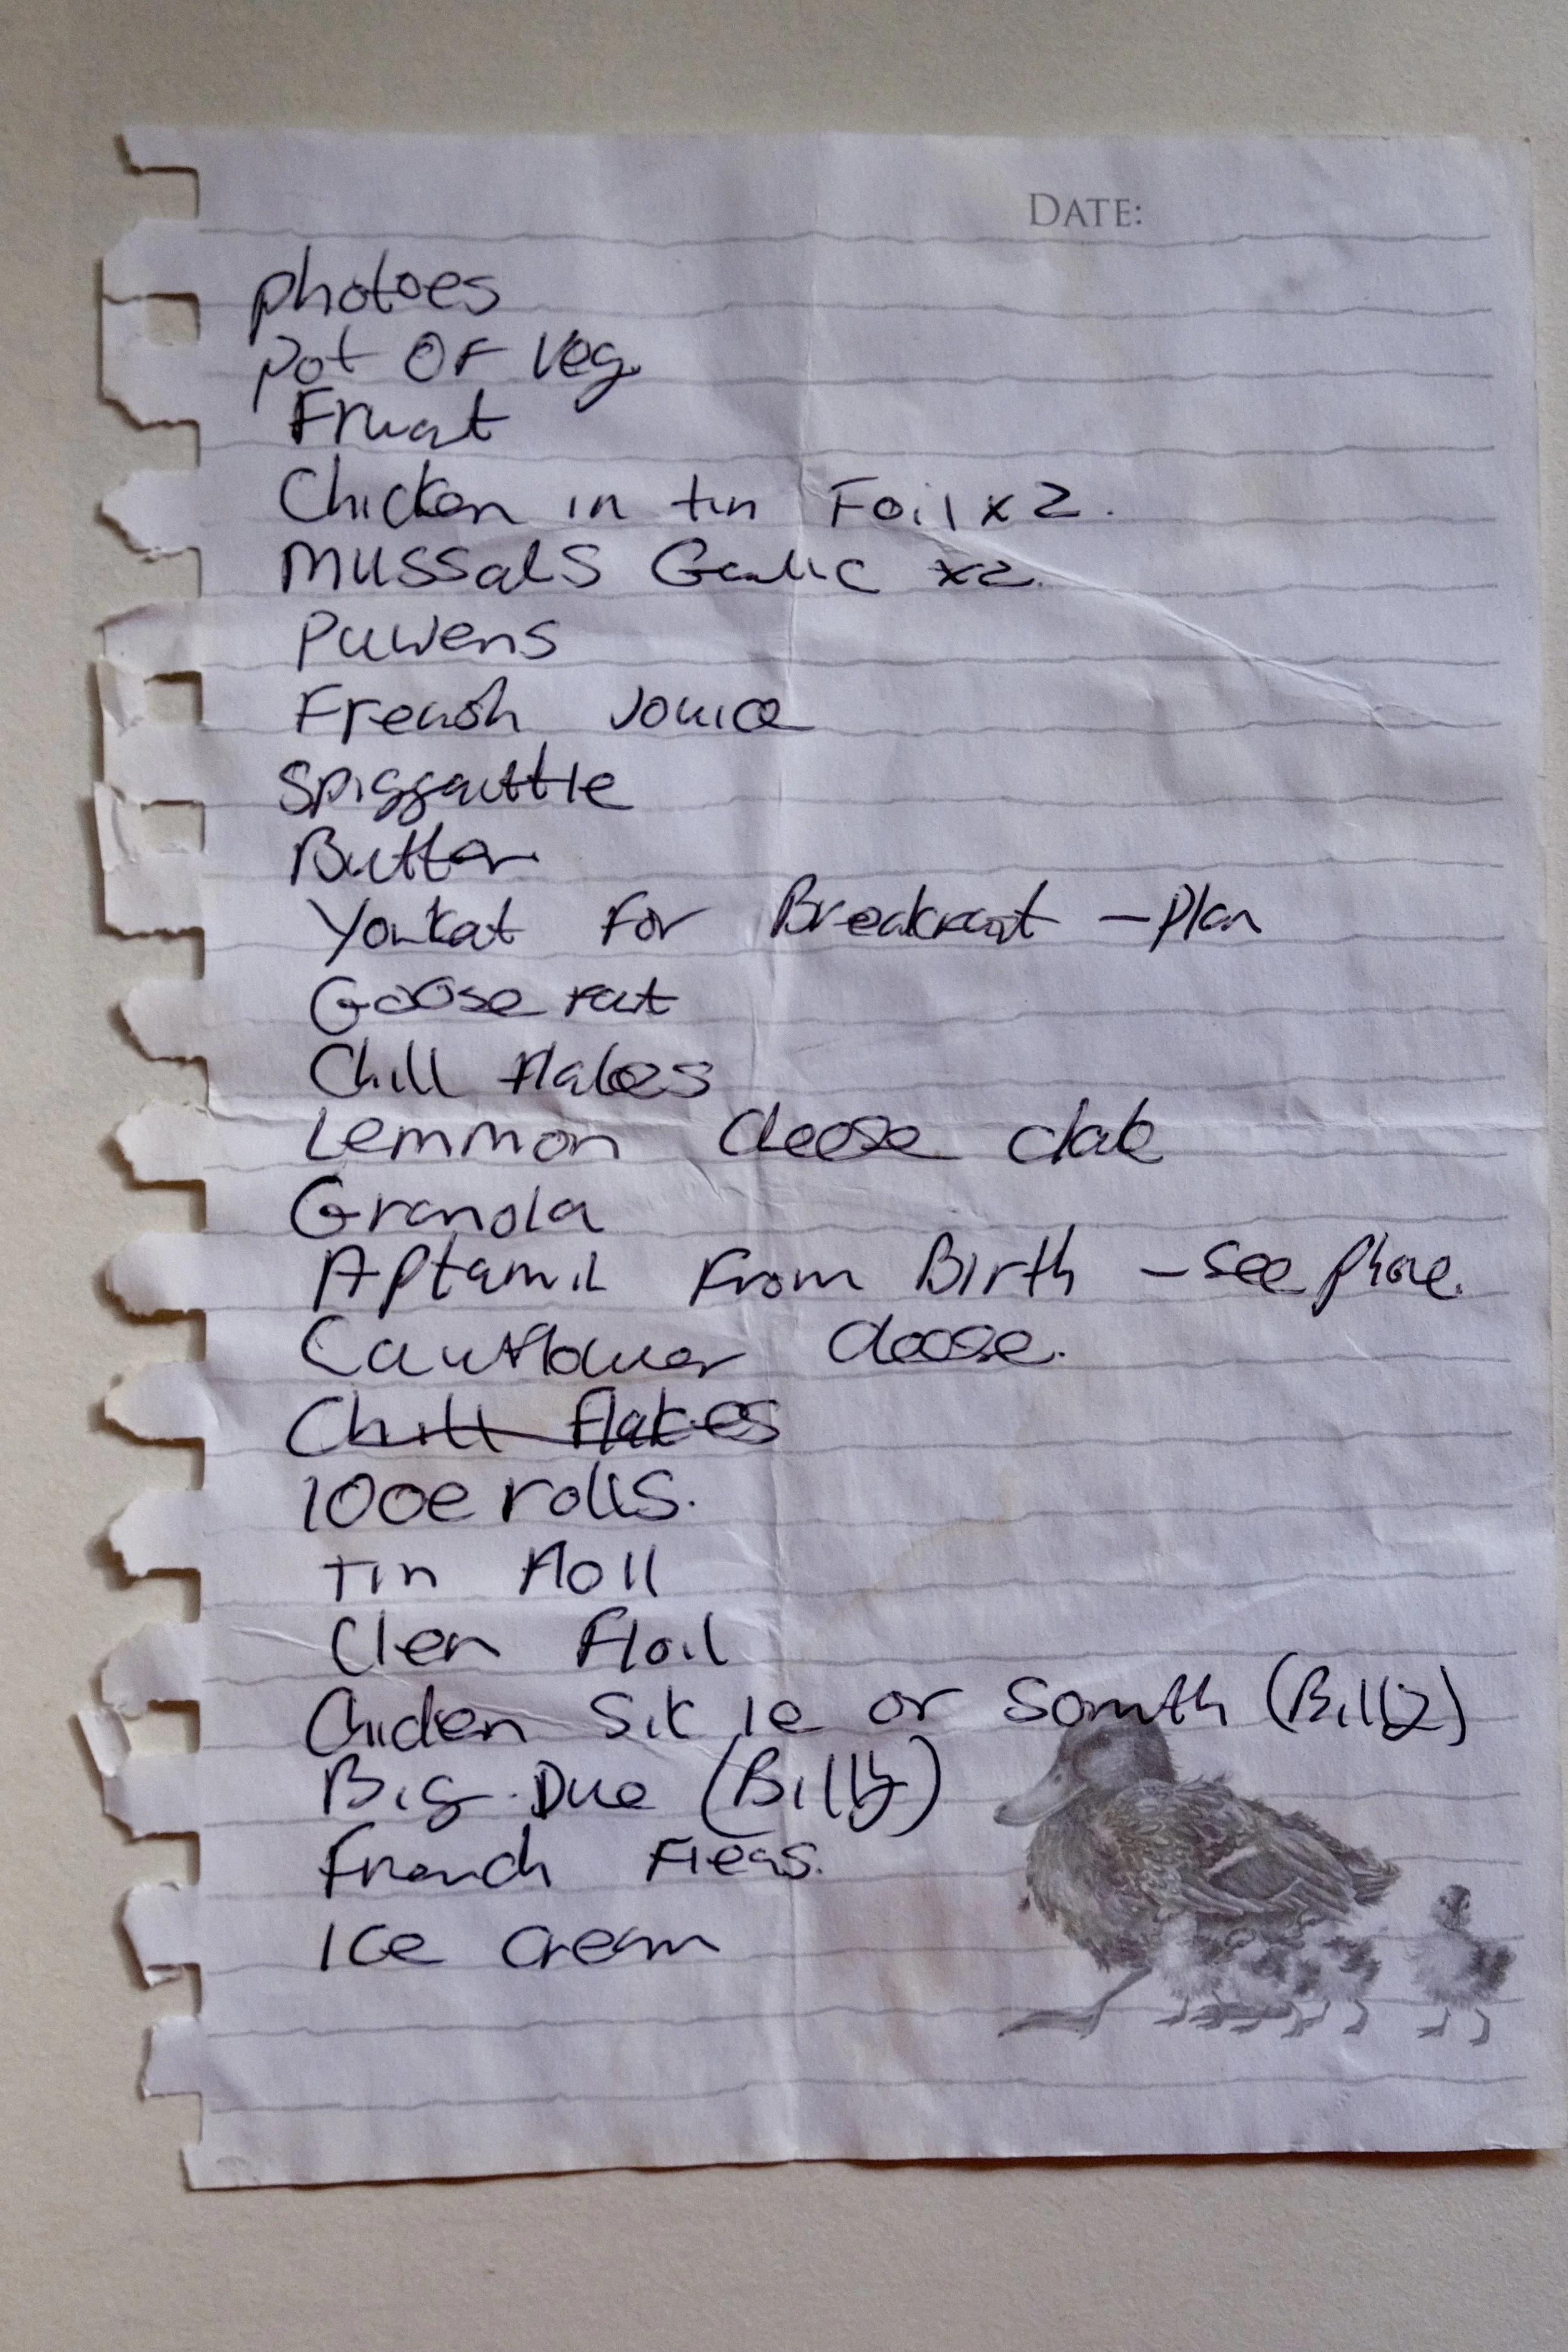 DATE:
photoes
pot OF Veg.
Fruat
Chicken in tin Foil x 2.
MUSSalS Garlic x2.
Pawens
French Jouice
Spiggauttle
Butter
Youkat For Breakfast - Plan
Goose fat
Chill flakes
Lemmon cheese clake
Granola
Aptamil From Birth - see phone.
Cauflower cheese.
Chill Flakes
looe rolls.
Tin floll
Clen Floil
Chicken Sit le or Somth (Billy)
Big Due (Billy)
French Fleas.
Ice cream